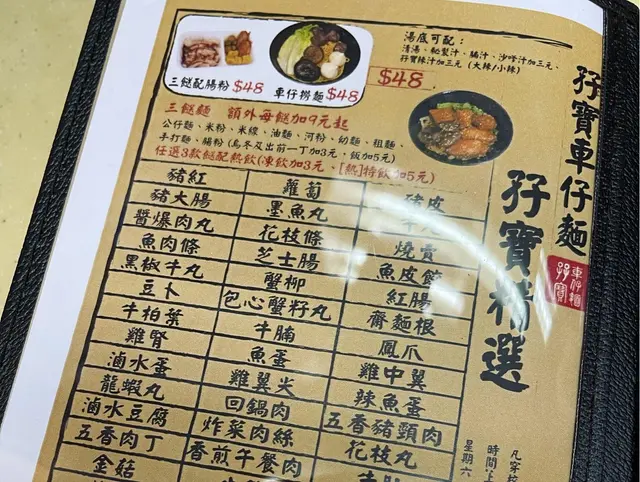 湯底可配：
清湯、秘製汁、腩汁、沙嗲汁加三元、
孖寶辣汁加三元（大辣/小辣）
三餸配腸粉 $48
車仔撈麵 $48
$48
孖寶車仔麵
孖寶精選
孖寶
車仔麵
三餸麵 額外每餸加9元起
公仔麵、米粉、米線、油麵、河粉、幼麵、粗麵、
手打麵、腸粉（烏冬及出前一丁加3元、飯加5元）
任選3款餸配熱飲（凍飲加3元、[熱]特飲加5元）
豬紅 蘿蔔 豬皮
豬大腸 墨魚丸
醬爆肉丸 花枝條 燒賣
魚肉條 芝士腸 魚皮餃
黑椒牛丸 蟹柳 紅腸
豆卜 包心蟹籽丸 齋麵根
牛柏葉 牛腩 鳳爪
雞腎 魚蛋 雞中翼
滷水蛋 雞翼尖 辣魚蛋
龍蝦丸 回鍋肉 五香豬頸肉
滷水豆腐 炸菜肉絲 花枝丸
五香肉丁 香煎午餐肉
金菇
凡穿校
時間:上
星期六